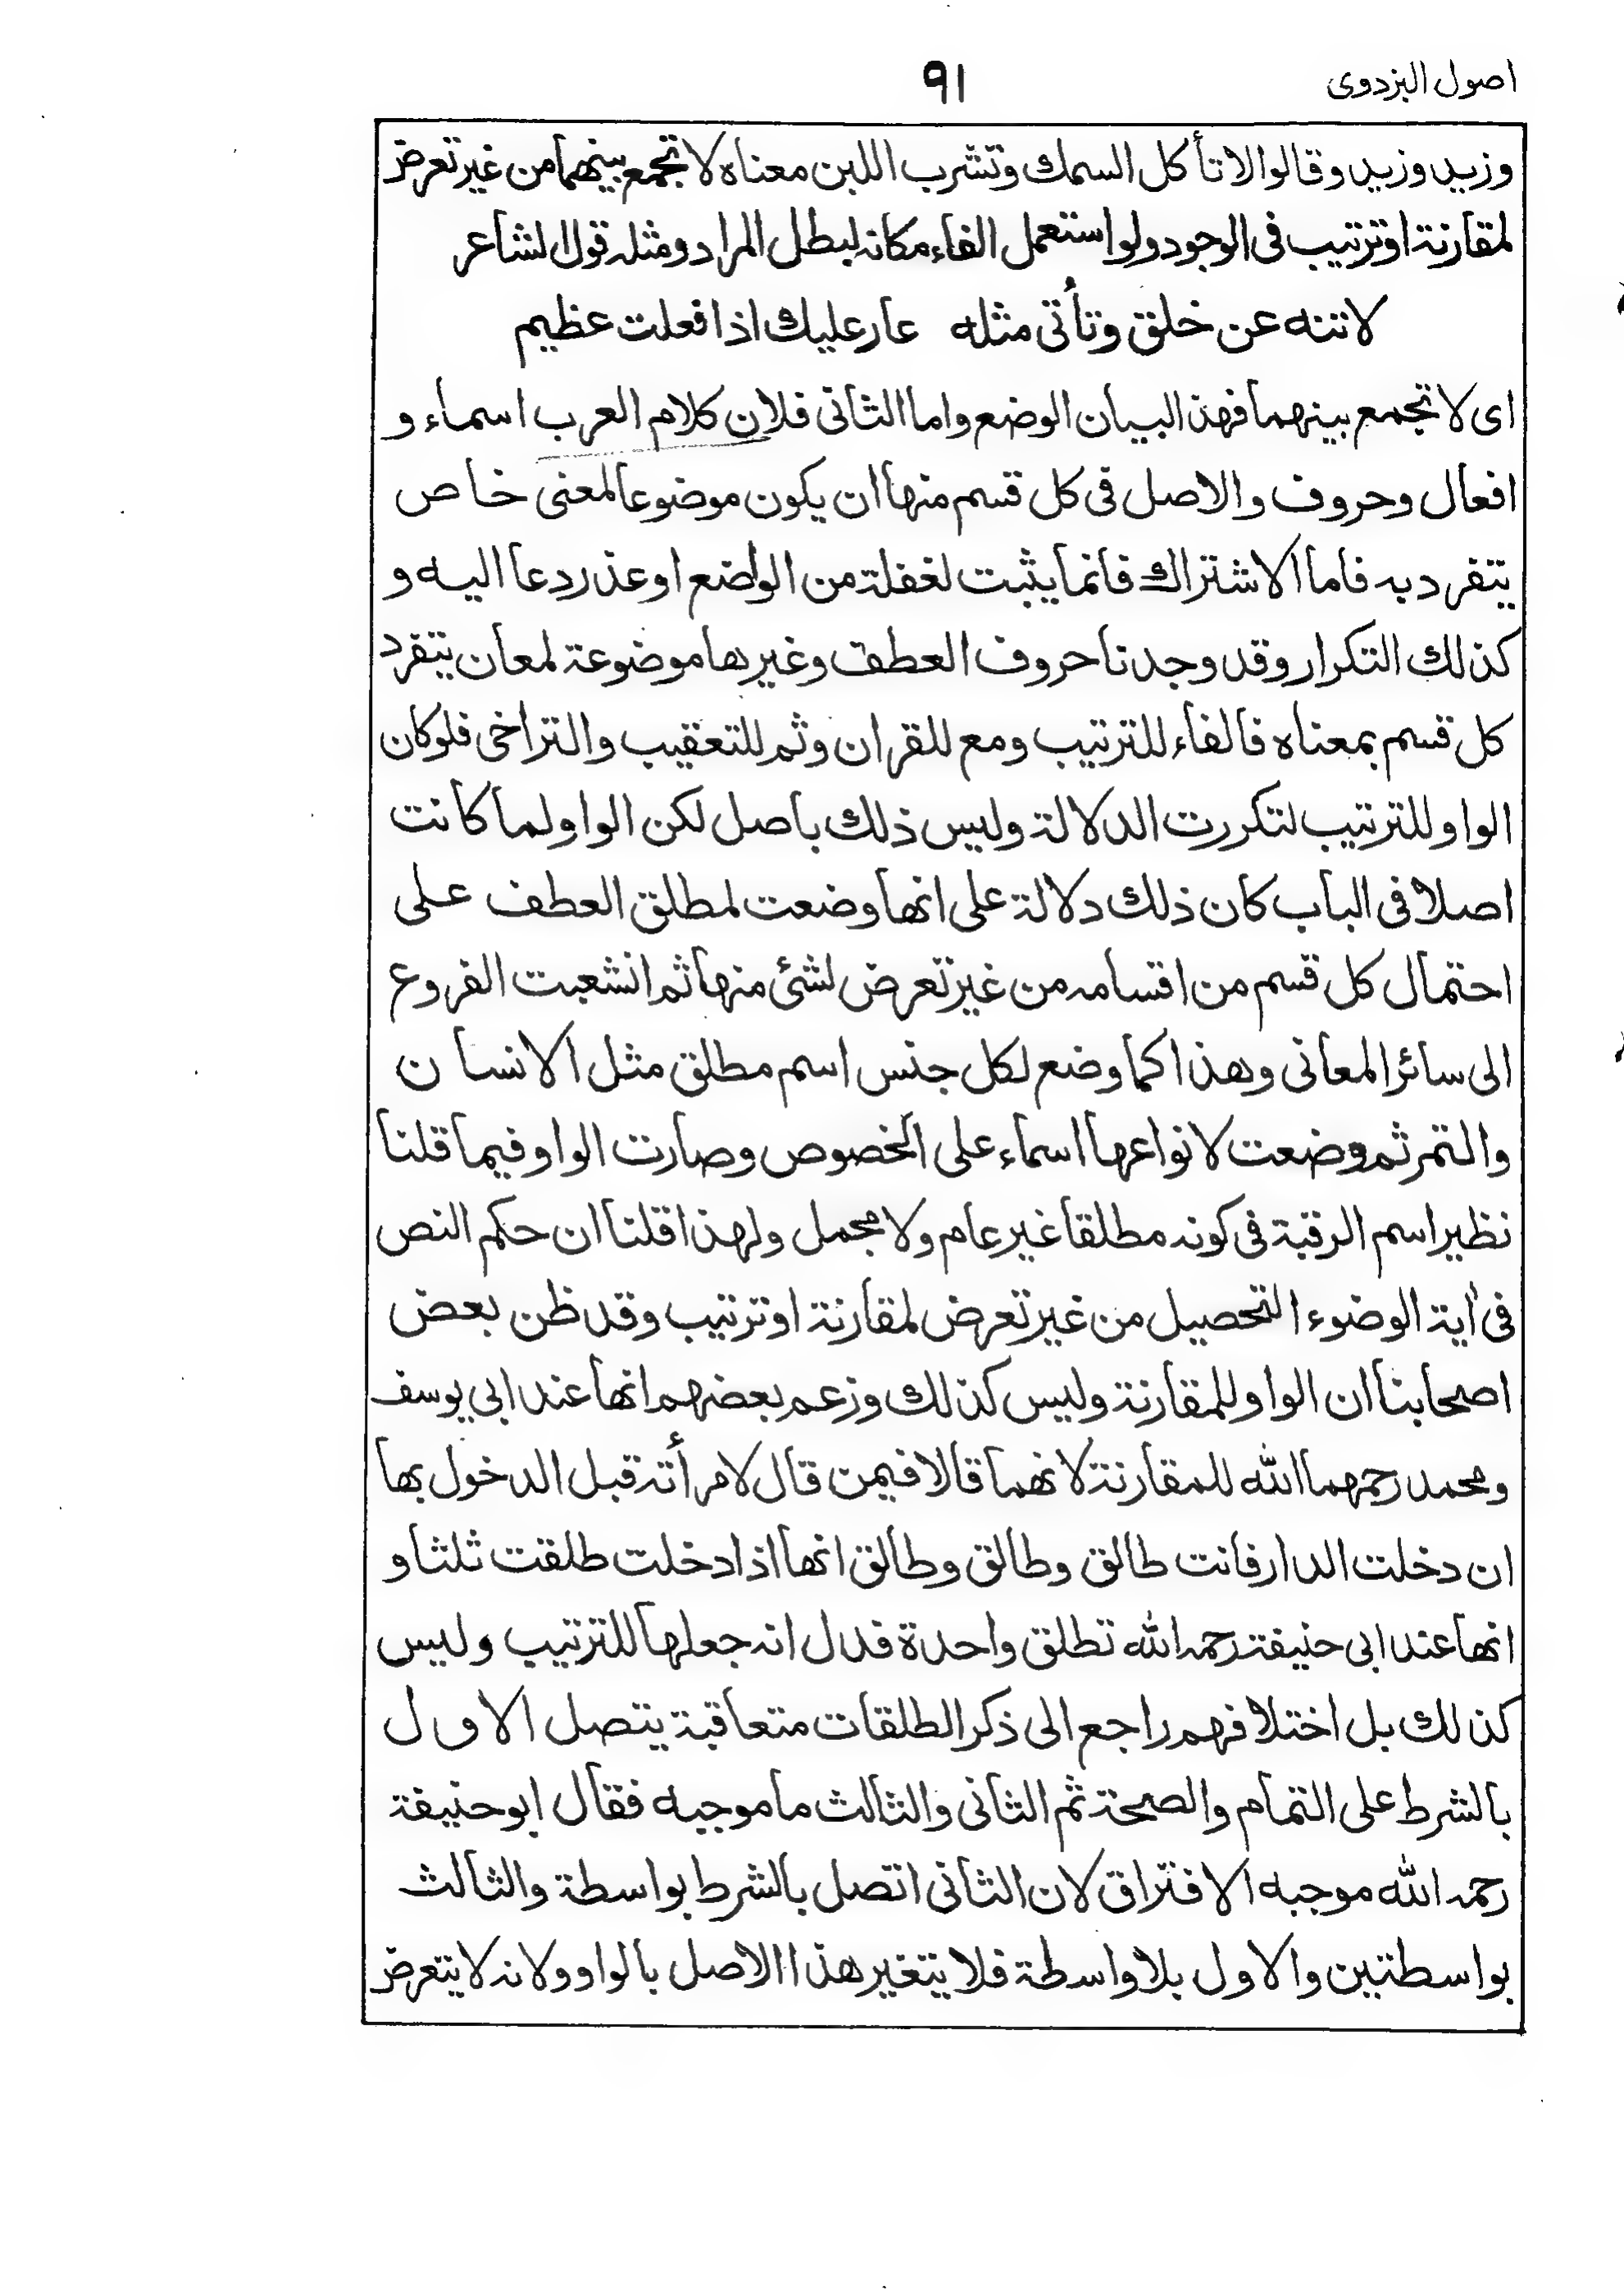 اصول البزدوى
٩١
وزيد وزيد وقالوا لا تأكل السمك وتشرب اللبن معناه لا تجمع بينهما من غير تعرض
لمقارنة او ترتيب فى الوجود ولو استعمل الفاء مكانه لبطل المراد ومثله قول الشاعر
لا تنه عن خلق وتأتى مثله عار عليك اذا فعلت عظيم
اى لا تجمع بينهما فهذا لبيان الوضع واما الثانى فلان كلام العرب اسماء و
افعال وحروف والاصل فى كل قسم منها ان يكون موضوعا لمعنى خاص
يتفرد به فاما الاشتراك فانما يثبت لغفلة من الواضع او عذر دعا اليه و
كذلك التكرار وقد وجدنا حروف العطف وغيرها موضوعة لمعان يتفرد
كل قسم بمعناه فالفاء للترتيب ومع للقران وثم للتعقيب والتراخى فلو كان
الواو للترتيب لتكررت الدلالة وليس ذلك باصل لكن الواو لما كانت
اصلا فى الباب كان ذلك دلالة على انها وضعت لمطلق العطف على
احتمال كل قسم من اقسامه من غير تعرض لشئ منها ثم انشعبت الفروع
الى سائر المعانى وهذا كما وضع لكل جنس اسم مطلق مثل الانسان
والتمر ثم وضعت لانواعها اسماء على الخصوص وصارت الواو فيما قلنا
نظير اسم الرقبة فى كونه مطلقا غير عام ولا مجمل ولهذا قلنا ان حكم النص
فى اية الوضوء التحصيل من غير تعرض لمقارنة او ترتيب وقد ظن بعض
اصحابنا ان الواو للمقارنة وليس كذلك وزعم بعضهم انها عند ابي يوسف
ومحمد رحمهما الله للمقارنة لانهما قالا فيمن قال لامرأته قبل الدخول بها
ان دخلت الدار فانت طالق وطالق وطالق انها اذا دخلت طلقت ثلثا و
انها عند ابى حنيفة رحمه الله تطلق واحدة فدل انه جعلها للترتيب وليس
كذلك بل اختلافهم راجع الى ذكر الطلقات متعاقبة يتصل الاول
بالشرط على التمام والصحة ثم الثانى والثالث ما موجبه فقال ابو حنيفة
رحمه الله موجبه الافتراق لان الثانى اتصل بالشرط بواسطة والثالث
بواسطتين والاول بلا واسطة فلا يتغير هذا الاصل بالواو ولانه لا يتعرض